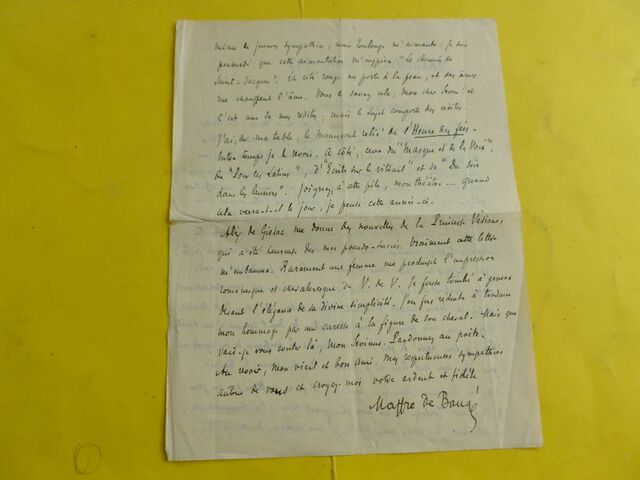 même de jeunes sympathies, mais Toulouse m'aimante. Je suis
persuadé que cette aimantation m'inspira "Le chemin de
Saint-Jacques". La cité rouge me porte à la peau, et ses âmes
me chauffent l'âme. Vous le savez cela, mon cher Sevin! et
c'est une de mes redites; mais le sujet comporte des redites.
J'ai, sur ma table, le manuscrit relié de l'Heure des fées.
temps je le revois. A côté, ceux du "Masque et de la Voix",
de "Pour les Latins", d'"Ecrits sur le vitrail" et de "Du soir
dans les lauriers". Joignez, à cette pile, mon théâtre... quand
cela verra-t-il le jour, je pense cette année-ci.
Alix de Gistac me donne des nouvelles de la Princesse
qui a été heureuse des mes pseudo-succès. Vraiment cette lettre
m'embauma. Rarement une femme me produisit l'impression
romanesque et chevaleresque de V. de V. Je fusse tombé à genoux
devant l'élégance de sa divine simplicité. J'en fus réduit à traduire
mon hommage par une caresse à la figure de son cheval. Mais que
vais-je vous conter là, mon Sevinus. Pardonnez au poète.
Au revoir, mon vieil et bon ami. Mes respectueuses sympathies
autour de vous et croyez-moi votre ardent et fidèle
Maffre de Baugé